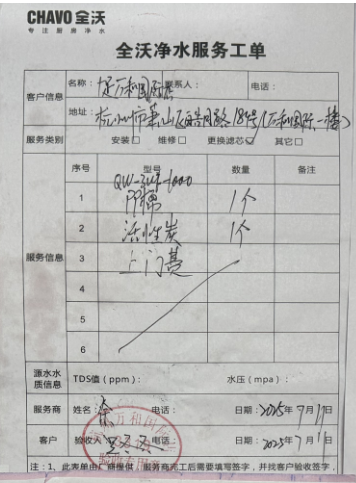 CHAVO 全沃
专注服务净水
全沃净水服务工单
客户信息
名称：
联系人：
电话：
地址：杭州市萧山区皓月路159号(万和国际一楼)
服务类别
安装□ 维修□ 更换滤芯☑ 其它□
服务信息
序号 型号 数量 备注
1 PP棉 1个
2 活性炭 1个
3 上门费
4
5
6
源水水质信息
TDS值（ppm）：
水压（mpa）：
服务商
姓名：
电话：
日期：2025年7月11日
客户
验收人
电话：
日期：2025年7月11日
注：1、此表单由厂商提供，服务商完工后需要填写签字，并找客户验收签字，